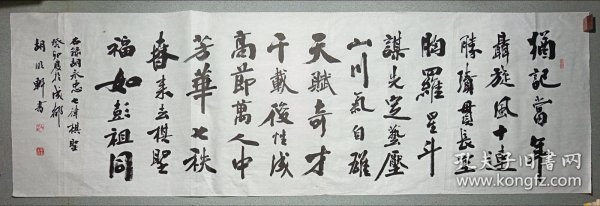 猶記當年
聶旋風十連
勝績貫長空
胸羅星斗
謀先定藝壓
山川氣自雄
天賦奇才
千載後性成
高節萬人中
芳華七秩
春來去棋聖
福如彭祖同
右錄胡永忠七律棋聖
癸卯夏於成都
胡軒書
孔夫子旧书网
www.kongfz.com